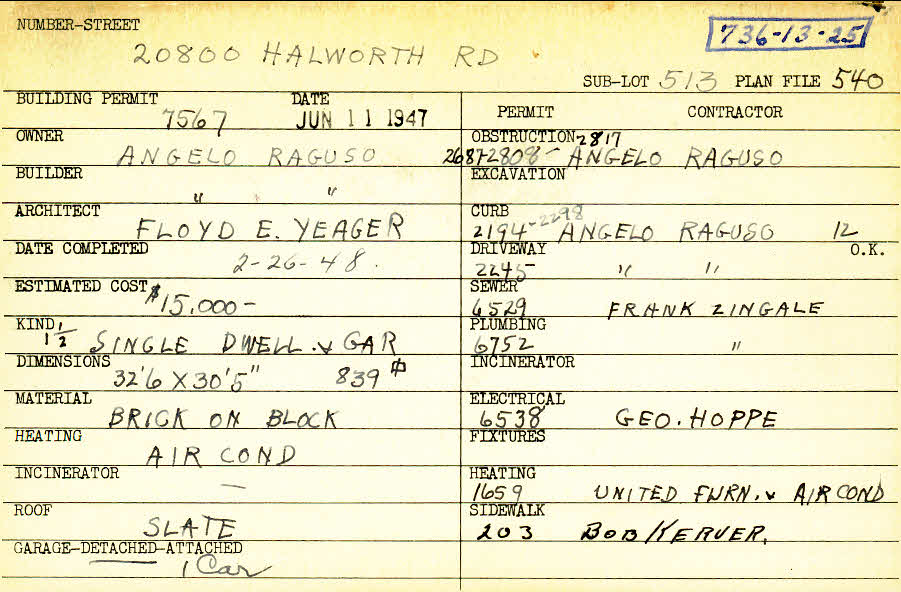 NUMBER-STREET
20800 HALWORTH RD
736-13-25
SUB-LOT 513 PLAN FILE 540
BUILDING PERMIT DATE
7567 JUN 11 1947
OWNER
ANGELO RAGUSO
BUILDER
" "
ARCHITECT
FLOYD E. YEAGER
DATE COMPLETED
2-26-48.
ESTIMATED COST
$15,000-
KIND
1 1/2 SINGLE DWELL. & GAR
DIMENSIONS
32'6 X 30'5" 839
MATERIAL
BRICK ON BLOCK
HEATING
AIR COND
INCINERATOR
—
ROOF
SLATE
GARAGE-DETACHED-ATTACHED
1 Car
PERMIT CONTRACTOR
OBSTRUCTION-2817
2687-2808- ANGELO RAGUSO
EXCAVATION
CURB
2194-2298 ANGELO RAGUSO 12
DRIVEWAY O.K.
2245 " "
SEWER
6529 FRANK ZINGALE
PLUMBING
6752 "
INCINERATOR
ELECTRICAL
6538 GEO. HOPPE
FIXTURES
HEATING
1659 UNITED FURN. & AIR COND
SIDEWALK
203 BOB KERVER.